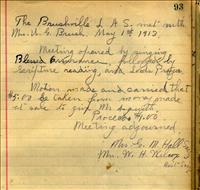 93
The Brushville L A S. met with
Mrs. U. G. Brush May 1st 1913.
Meeting opened by singing
Blewd followed by
scripture reading, and Lords Prayer.
Motion made and carried that
$5.00 be taken from money made
at sale to give Mr.
Proceeds $1.00
Meeting adjourned,
Mrs G. M. Hall
Mrs. W. H.